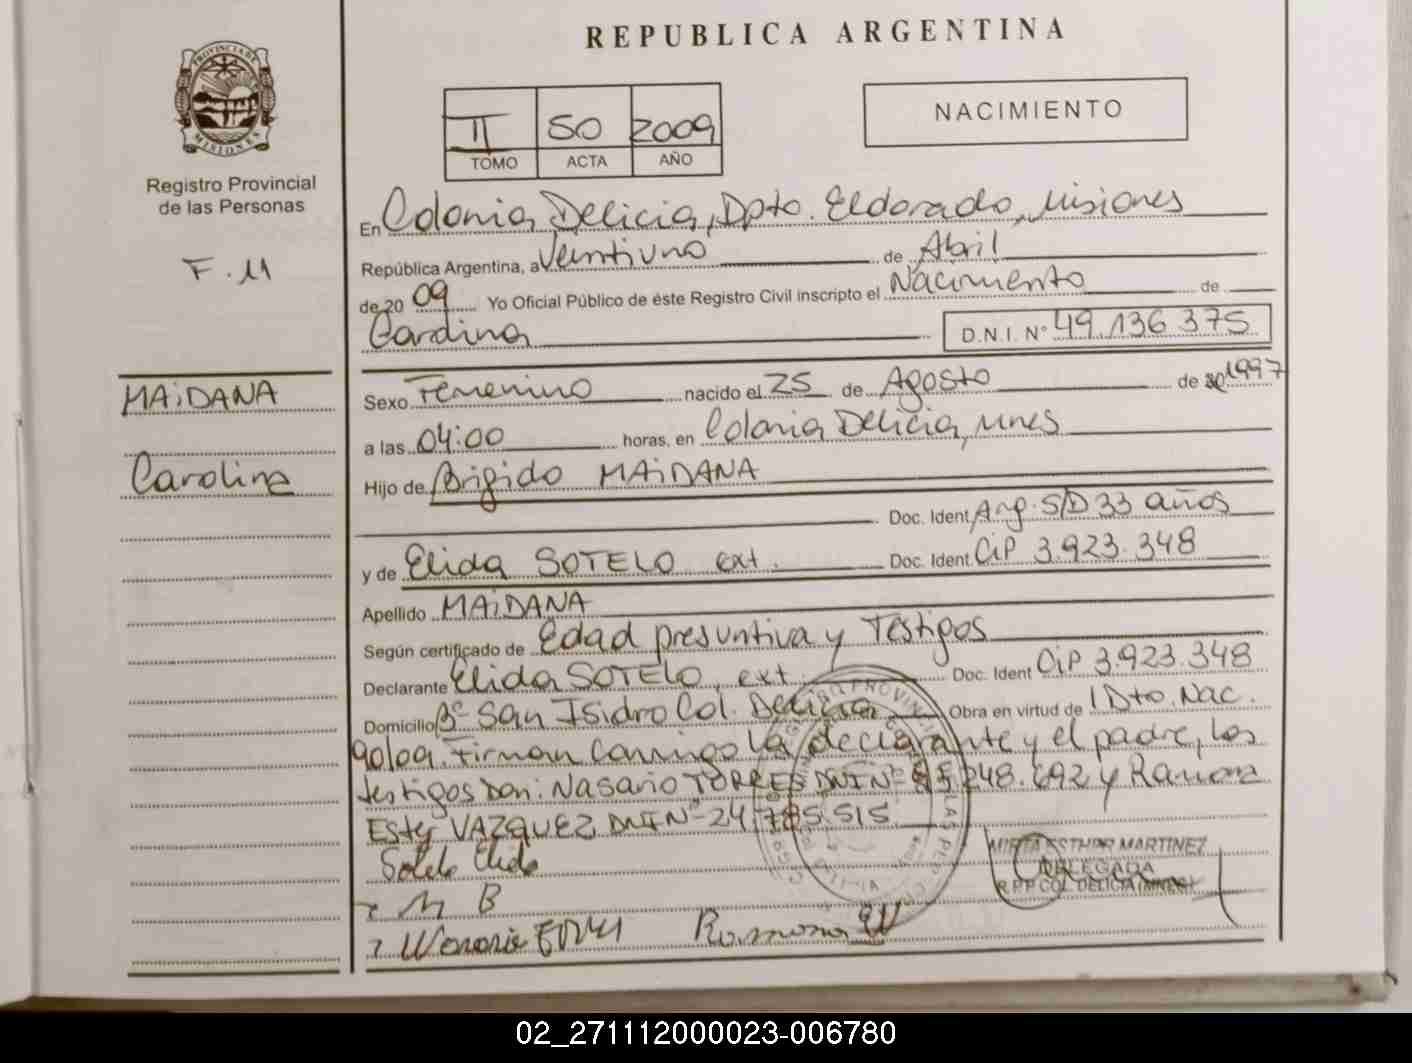 REPUBLICA ARGENTINA
PROVINCIA DE
MISIONES
Registro Provincial
de las Personas
F. 11
II 50 2009
TOMO ACTA AÑO
NACIMIENTO
En Colonia Delicia, Dpto. Eldorado, Misiones
República Argentina, a Veintiuno de Abril
de 20 09 Yo Oficial Público de éste Registro Civil inscripto el Nacimiento de
Carolina D.N.I. Nº 49.136 375
MAiDANA
Carolina
Sexo Femenino nacido el 25 de Agosto de 1997
a las 04:00 horas, en Colonia Delicia, Mnes
Hijo de Brigido MAiDANA
Doc. Ident. Arg. S/D 33 años
y de Elida SOTELO ext. Doc. Ident. CiP 3.923.348
Apellido MAiDANA
Según certificado de Edad presuntiva y Testigos
Declarante Elida SOTELO, ext. Doc. Ident CiP 3.923.348
Domicilio Bº San Isidro Col. Delicia Obra en virtud de Dto. Nac.
90/09. Firman conmigo la declarante y el padre, los
testigos Don: Nasario TORRES DNI Nº 248.692 y Ramona
Ester VAZQUEZ DNI Nº 24.785.515
Sotelo Elida
M B
Ramona
MIRTA ESTHER MARTINEZ
DELEGADA
R.P.P COL. DELICIA (MNES)
02_271112000023-006780